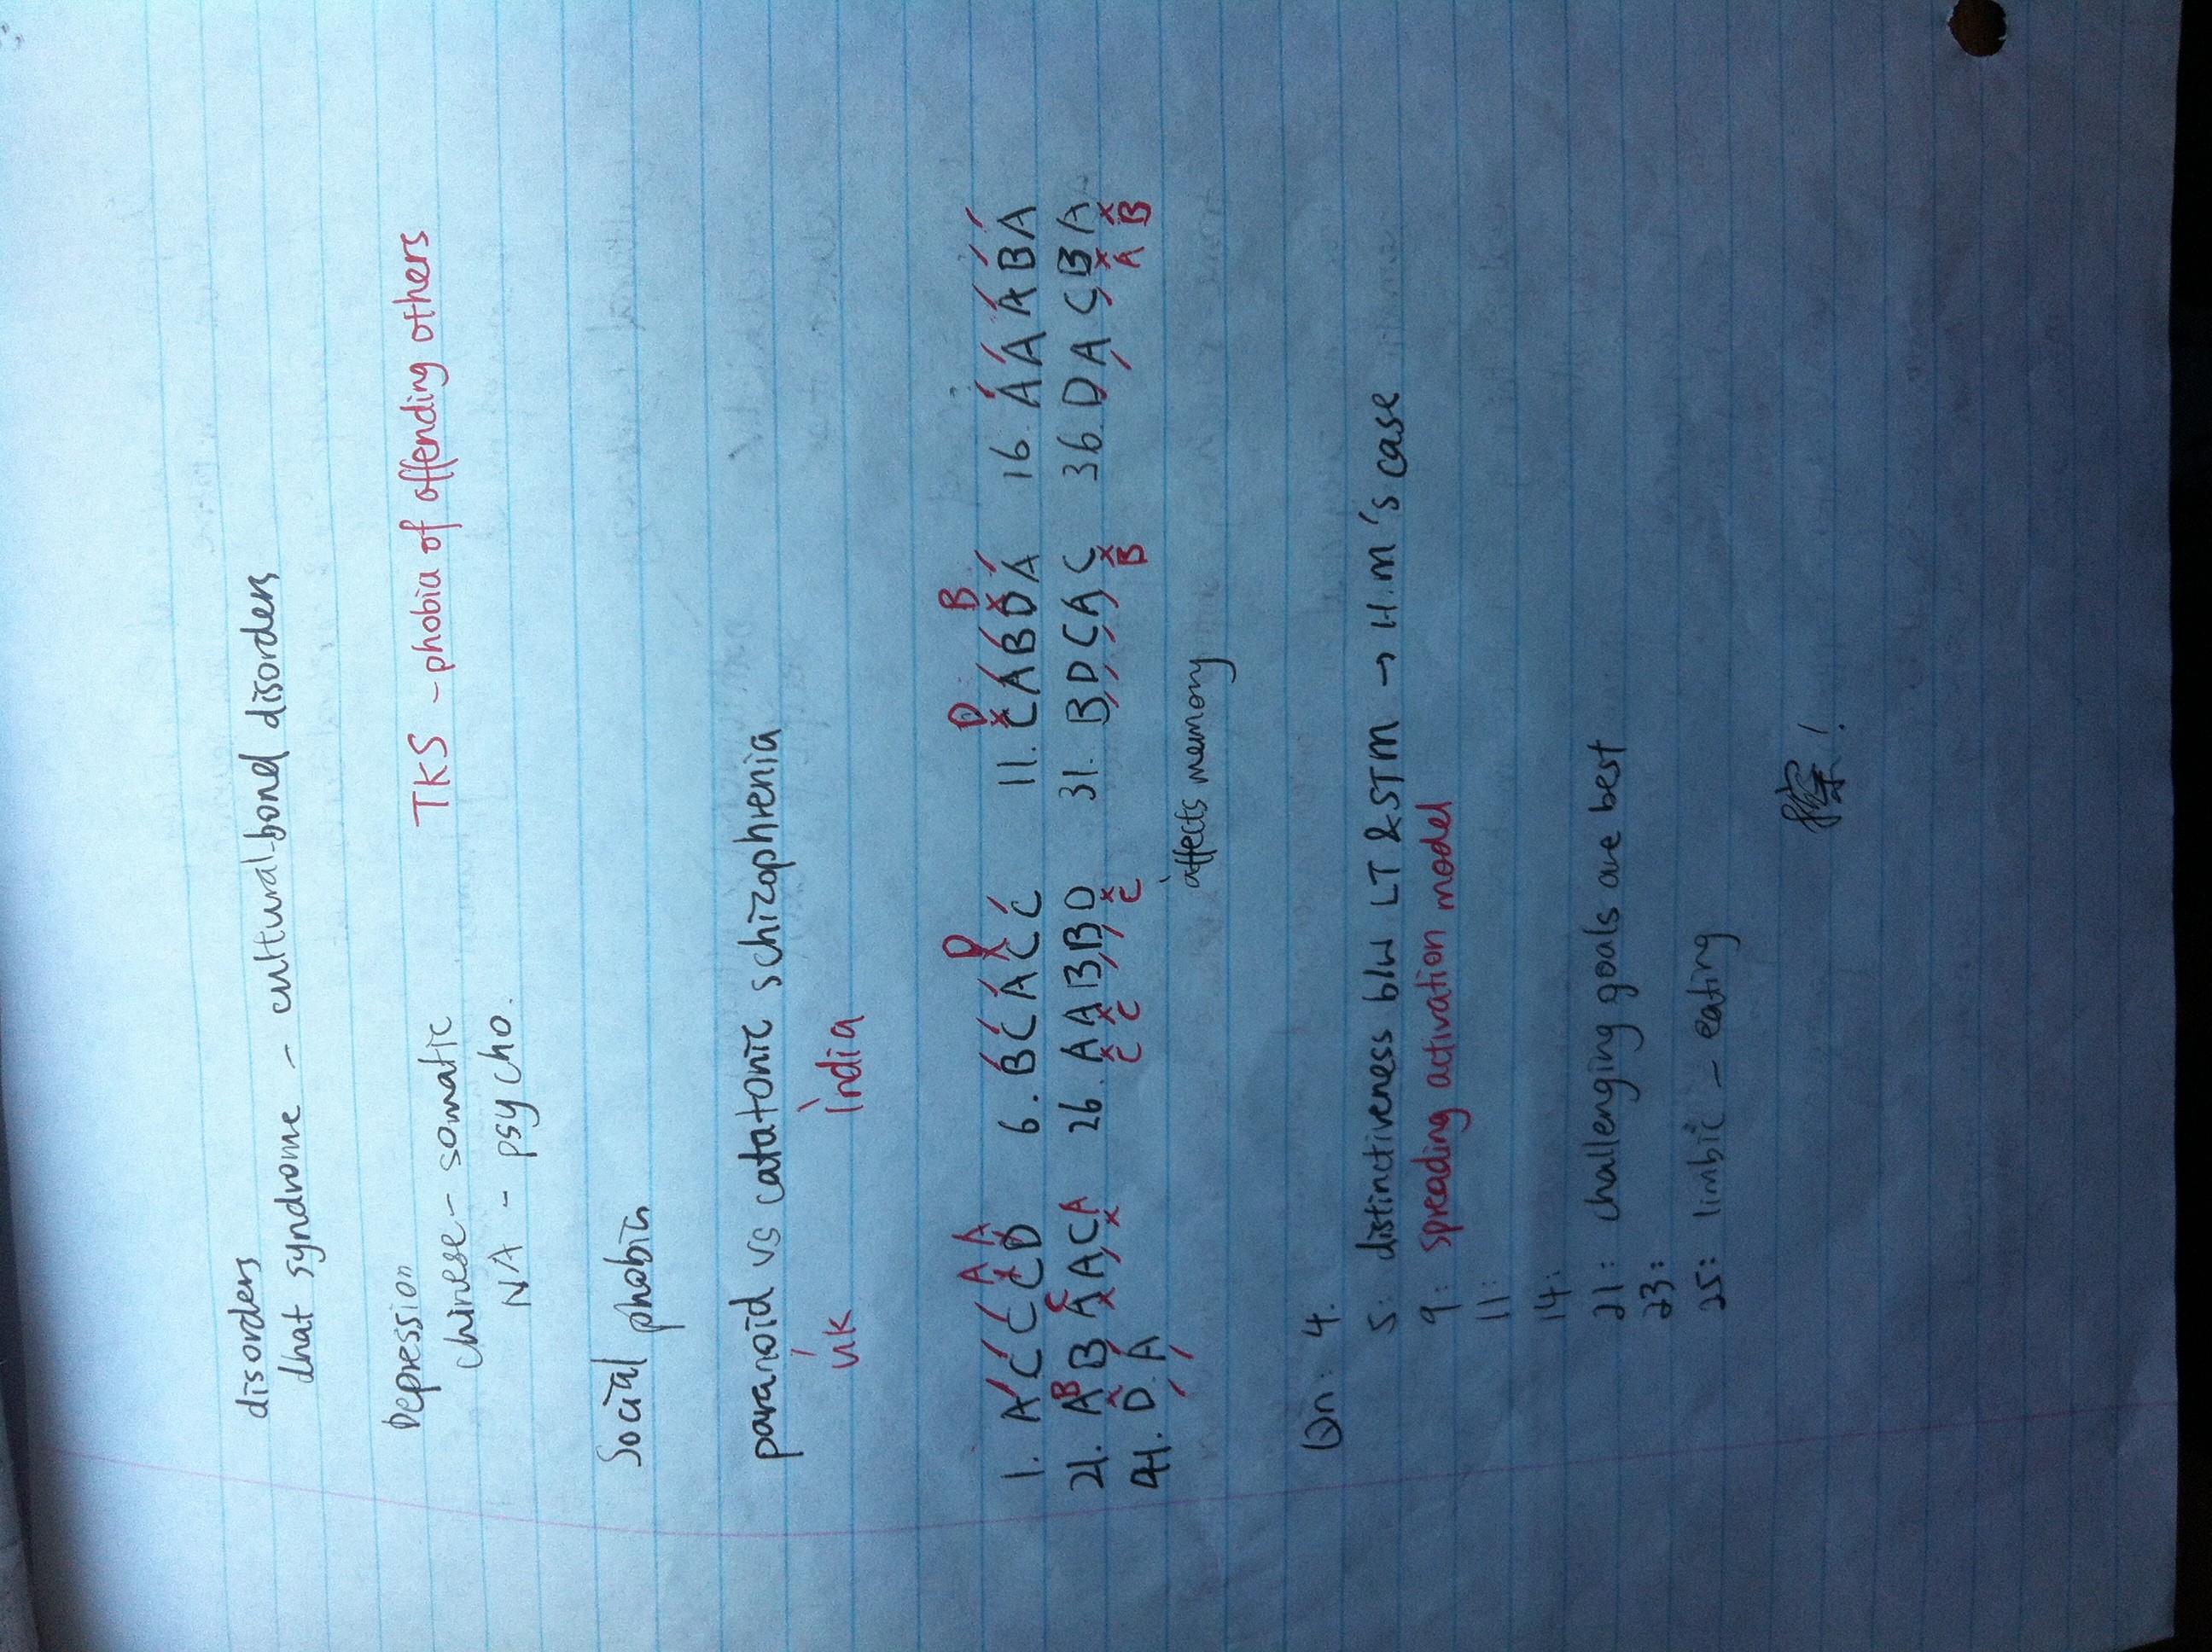 disorders
dhat syndrome - cultural-bond disorders
Depression
chinese - somatic
NA - psycho.
TKS - phobia of offending others
Social phobia
paranoid vs catatonic schizophrenia
UK India
A A D D B
1. A C C C D 6. B C A C C 11. C A B D A 16. A A A B A
B C
21. A B A A C A 26. A A B B D 31. B D C A C 36. D A C B A
C C C B A B
41. D A
affects memory
Qn: 4.
5: distinctiveness b/w LT & STM → H.M's case
9: spreading activation model
11:
14:
21: challenging goals are best
23:
25: limbic - eating